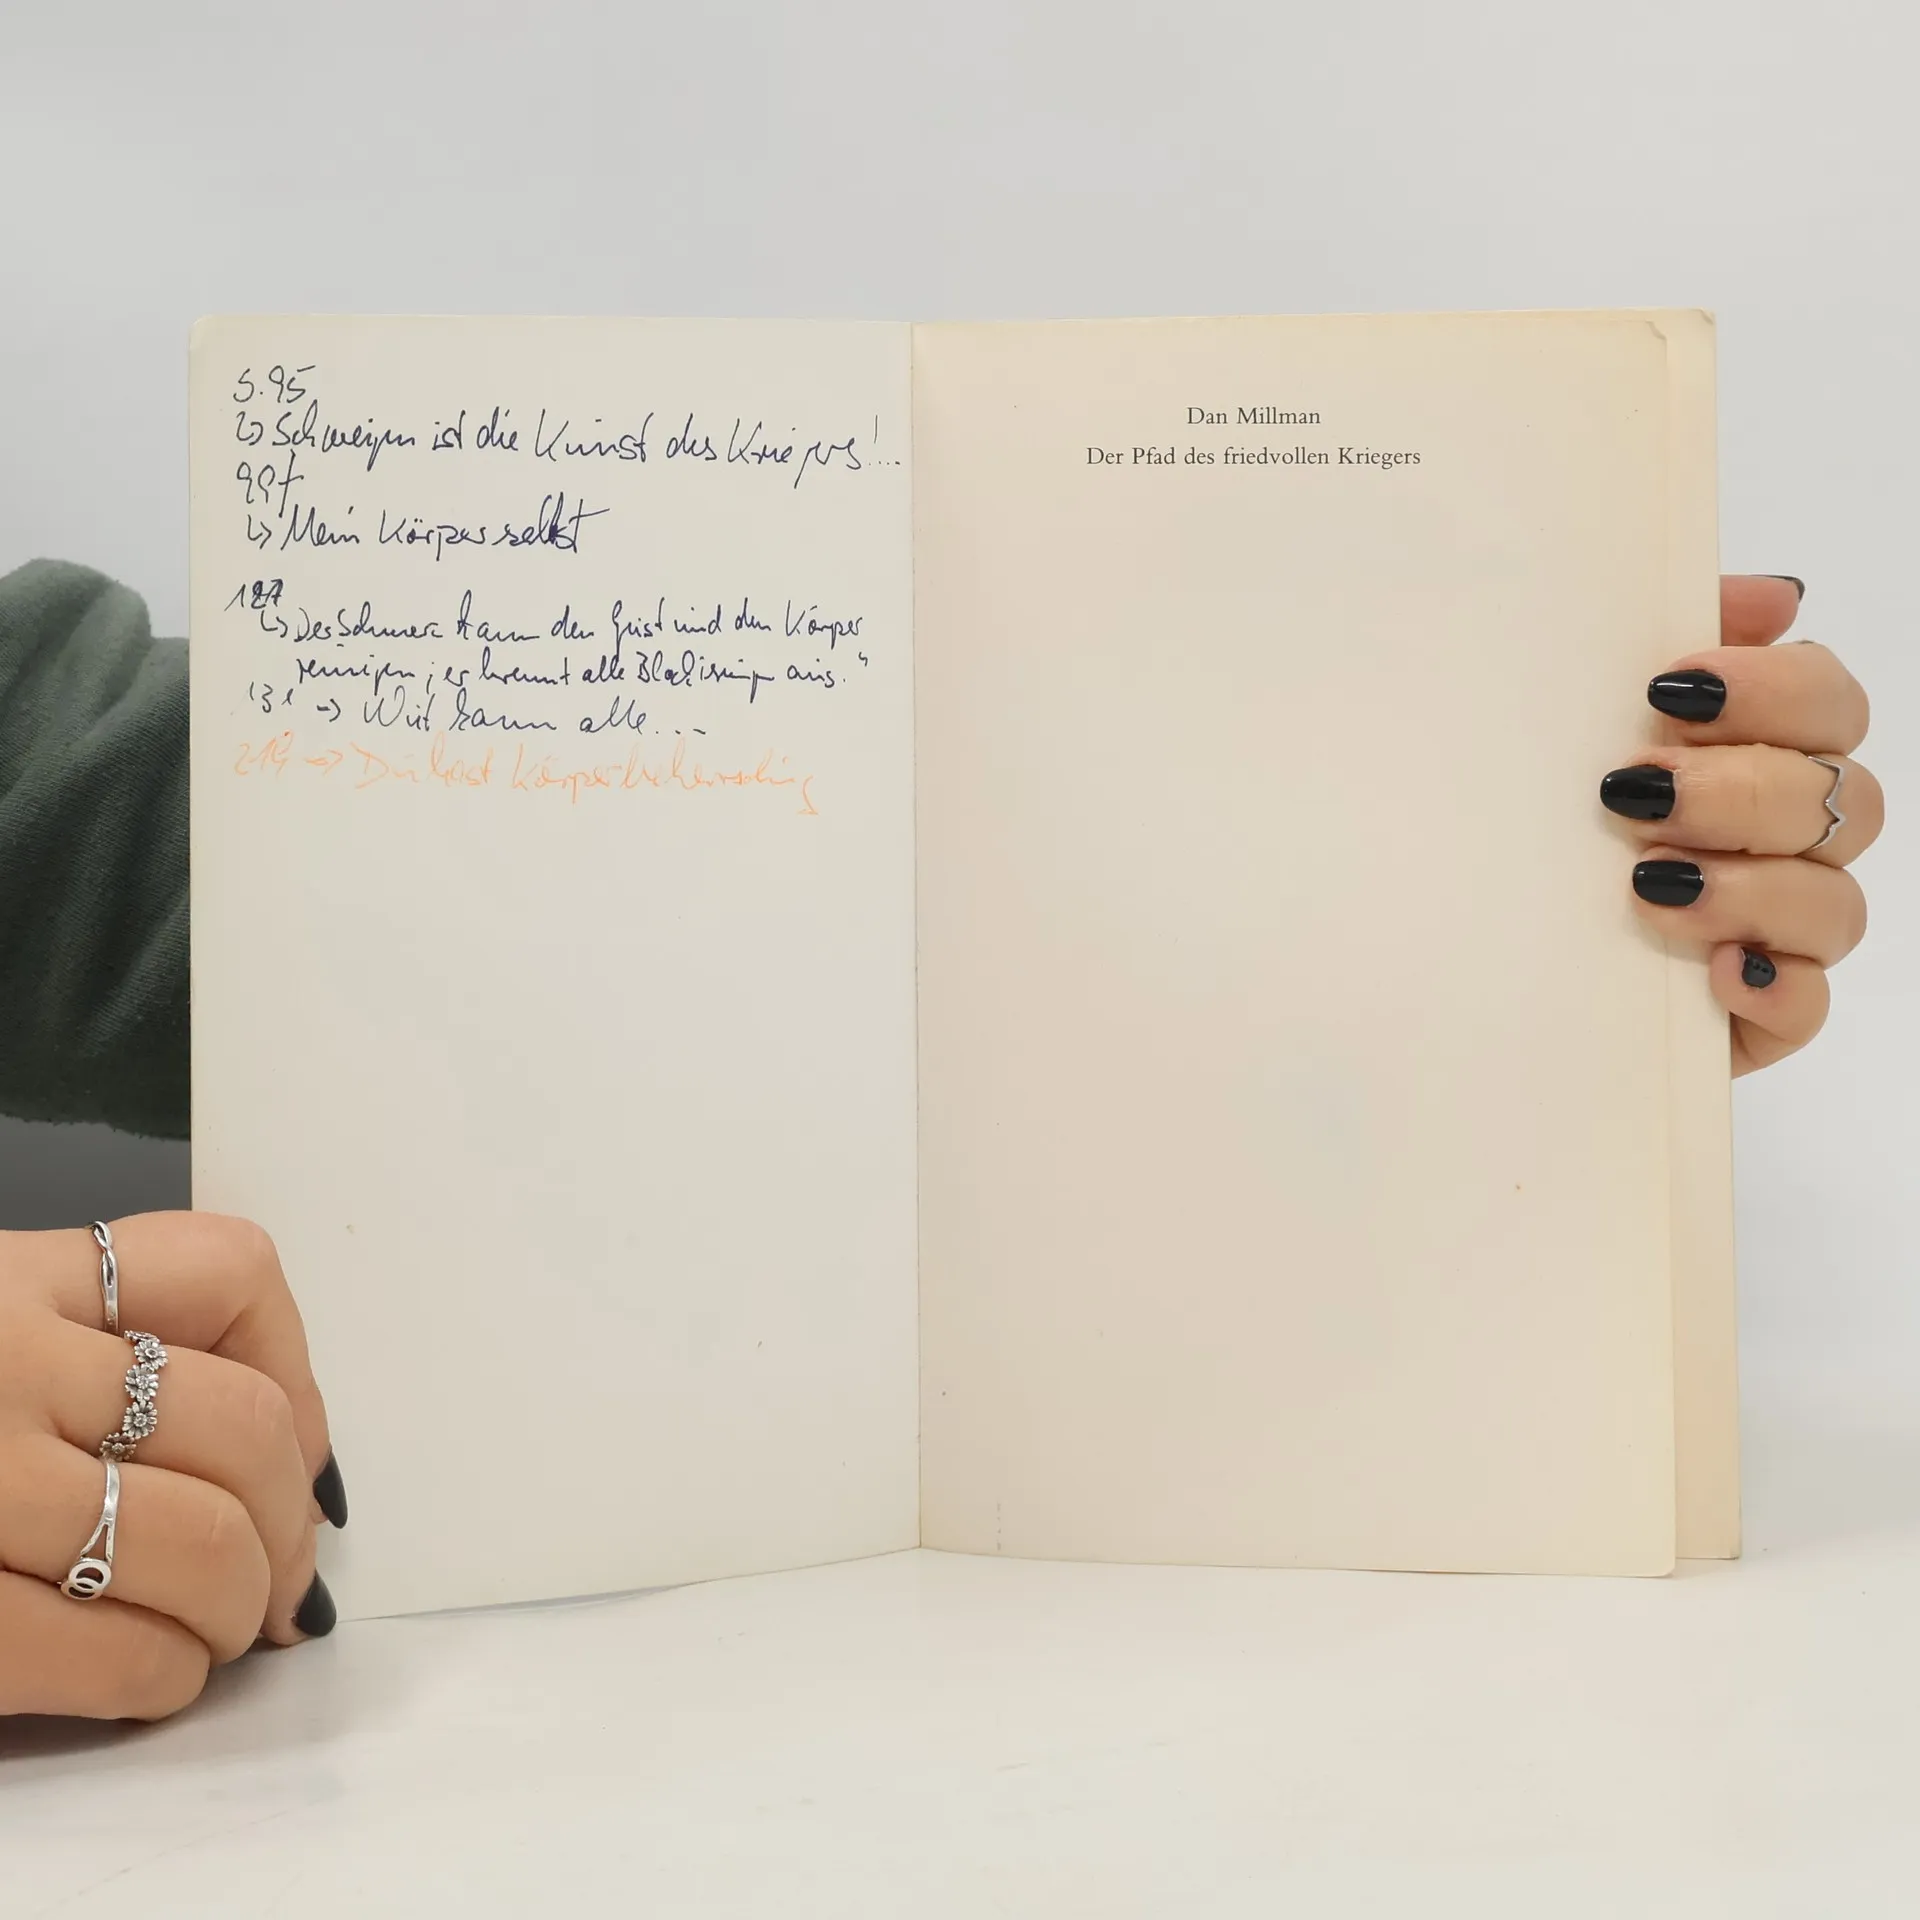 S. 95
↳ Schweigen ist die Kunst des Kriegers!...
99f
↳ Mein Körper selbst
127
↳ Der Schmerz kann den Geist und den Körper
reinigen; er brennt alle Blockierungen aus."
131 → Wut kann alle...
214 → Du hast Körperbeherrschung
Dan Millman
Der Pfad des friedvollen Kriegers